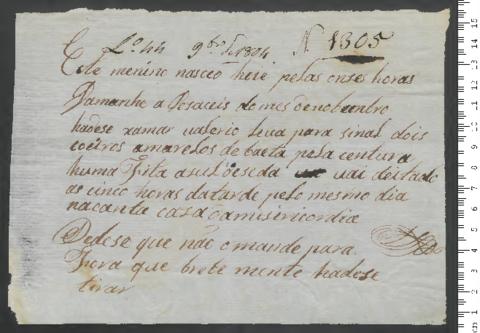 fo 44 9bro de 1804 N 1305
Este menino nasceo hoie pelas onse horas
Damanhe a dosaceis do mes denobenbro
hadese xamar valerio leva para sinal dois
coeiros amarelos de baeta pela centura
huma fita asul de seda vai deitado
as cinco horas da tarde pelo mesmo dia
na cante casa da misericordia
Pedese que não o mande para
Fora que brebe mente hadese
tirar